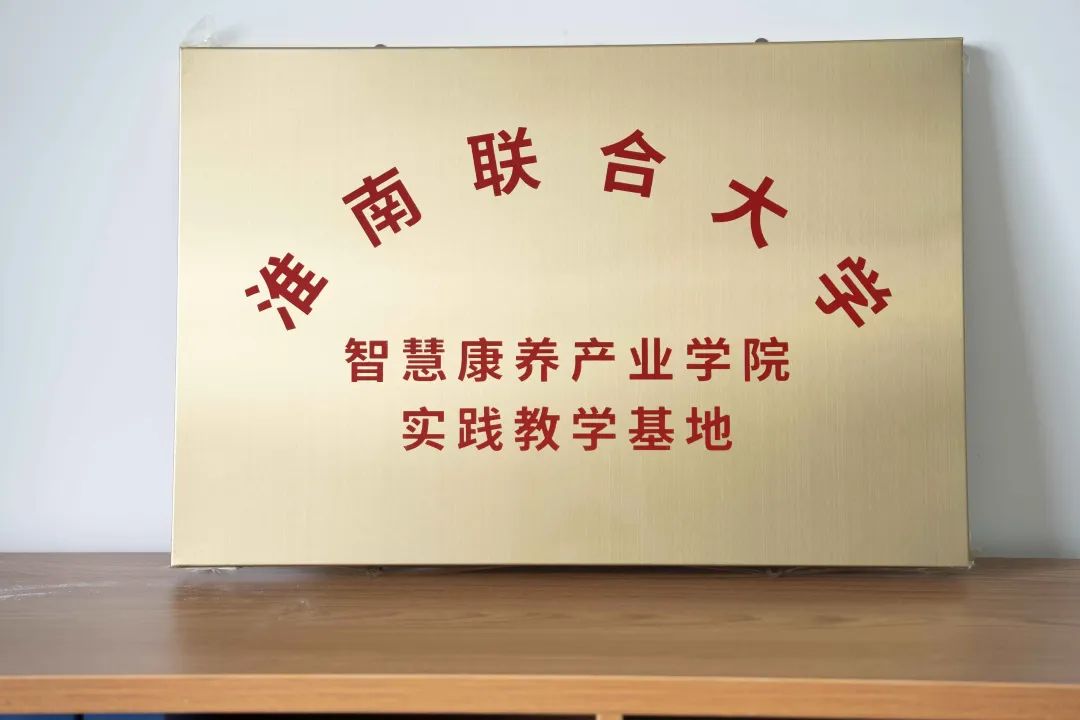 淮南联合大学
智慧康养产业学院
实践教学基地